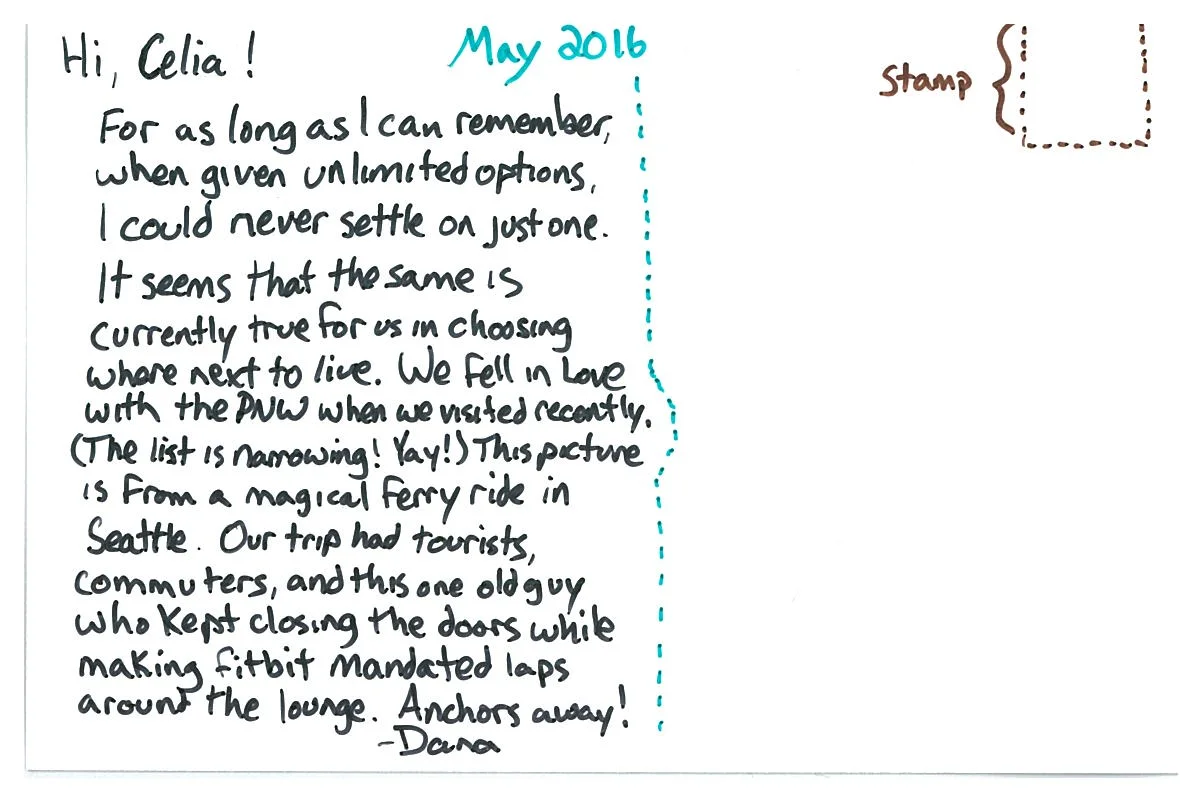 Hi, Celia!
May 2016
Stamp
For as long as I can remember,
when given unlimited options,
I could never settle on just one.
It seems that the same is
currently true for us in choosing
where next to live. We fell in Love
with the PNW when we visited recently.
(The list is narrowing! Yay!) This picture
is from a magical ferry ride in
Seattle. Our trip had tourists,
commuters, and this one old guy
who kept closing the doors while
making fitbit mandated laps
around the lounge. Anchors away!
-Dana